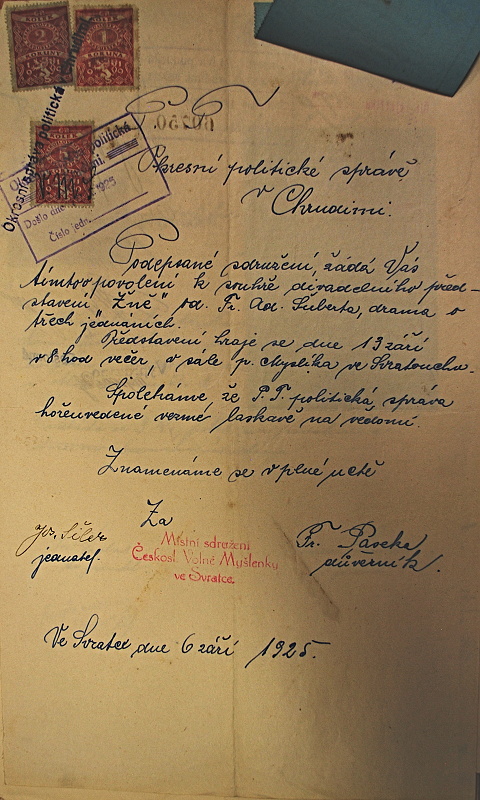 KOLEK
2
KORUNY
KOLEK
1
KORUNA
5
Okresní správa politická
Došlo dne 1925
Číslo jedn.
P. T.
Okresní politické správě
v Chrudimi.
Podepsané sdružení, žádá Vás
tímto o povolení k souhře divadelního před-
stavení "Žně" od Fr. Ad. Šuberta, drama o
třech jednáních.
Představení hraje se dne 13 září
v 8. hod večer, v sále p. Myslika ve Svratouchu.
Spoléháme, že P. T. politická správa
hořeuvedené vezmé laskavě na vědomí.
Znamenáme se v plné uctě
Za
Místní sdružení
Českosl. Volné Myšlenky
ve Svratce.
jednatel.
Fr. Pavelka
důvěrník.
Ve Svratce dne 6 září 1925.